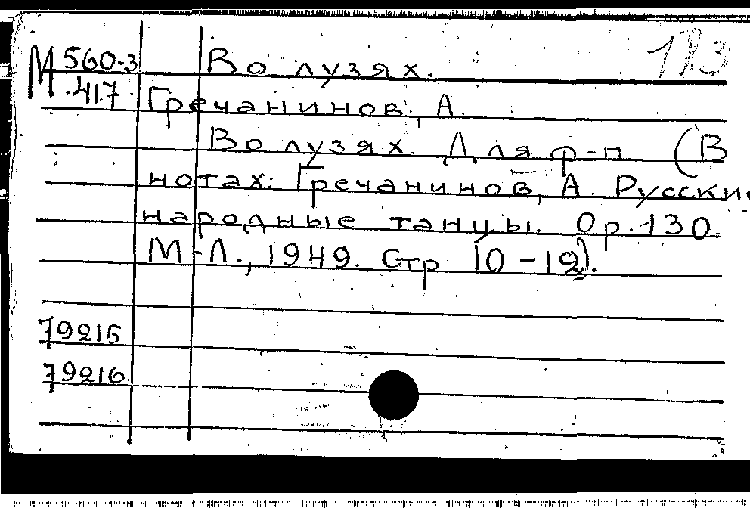 М 560-3 Во лузях. 173
.417 Гречанинов, А.
Во лузях. Для ф-п. (В
нотах: Гречанинов, А. Русские
народные танцы. Op.130.
М-Л., 1949. Стр 10-12).
79215
79216